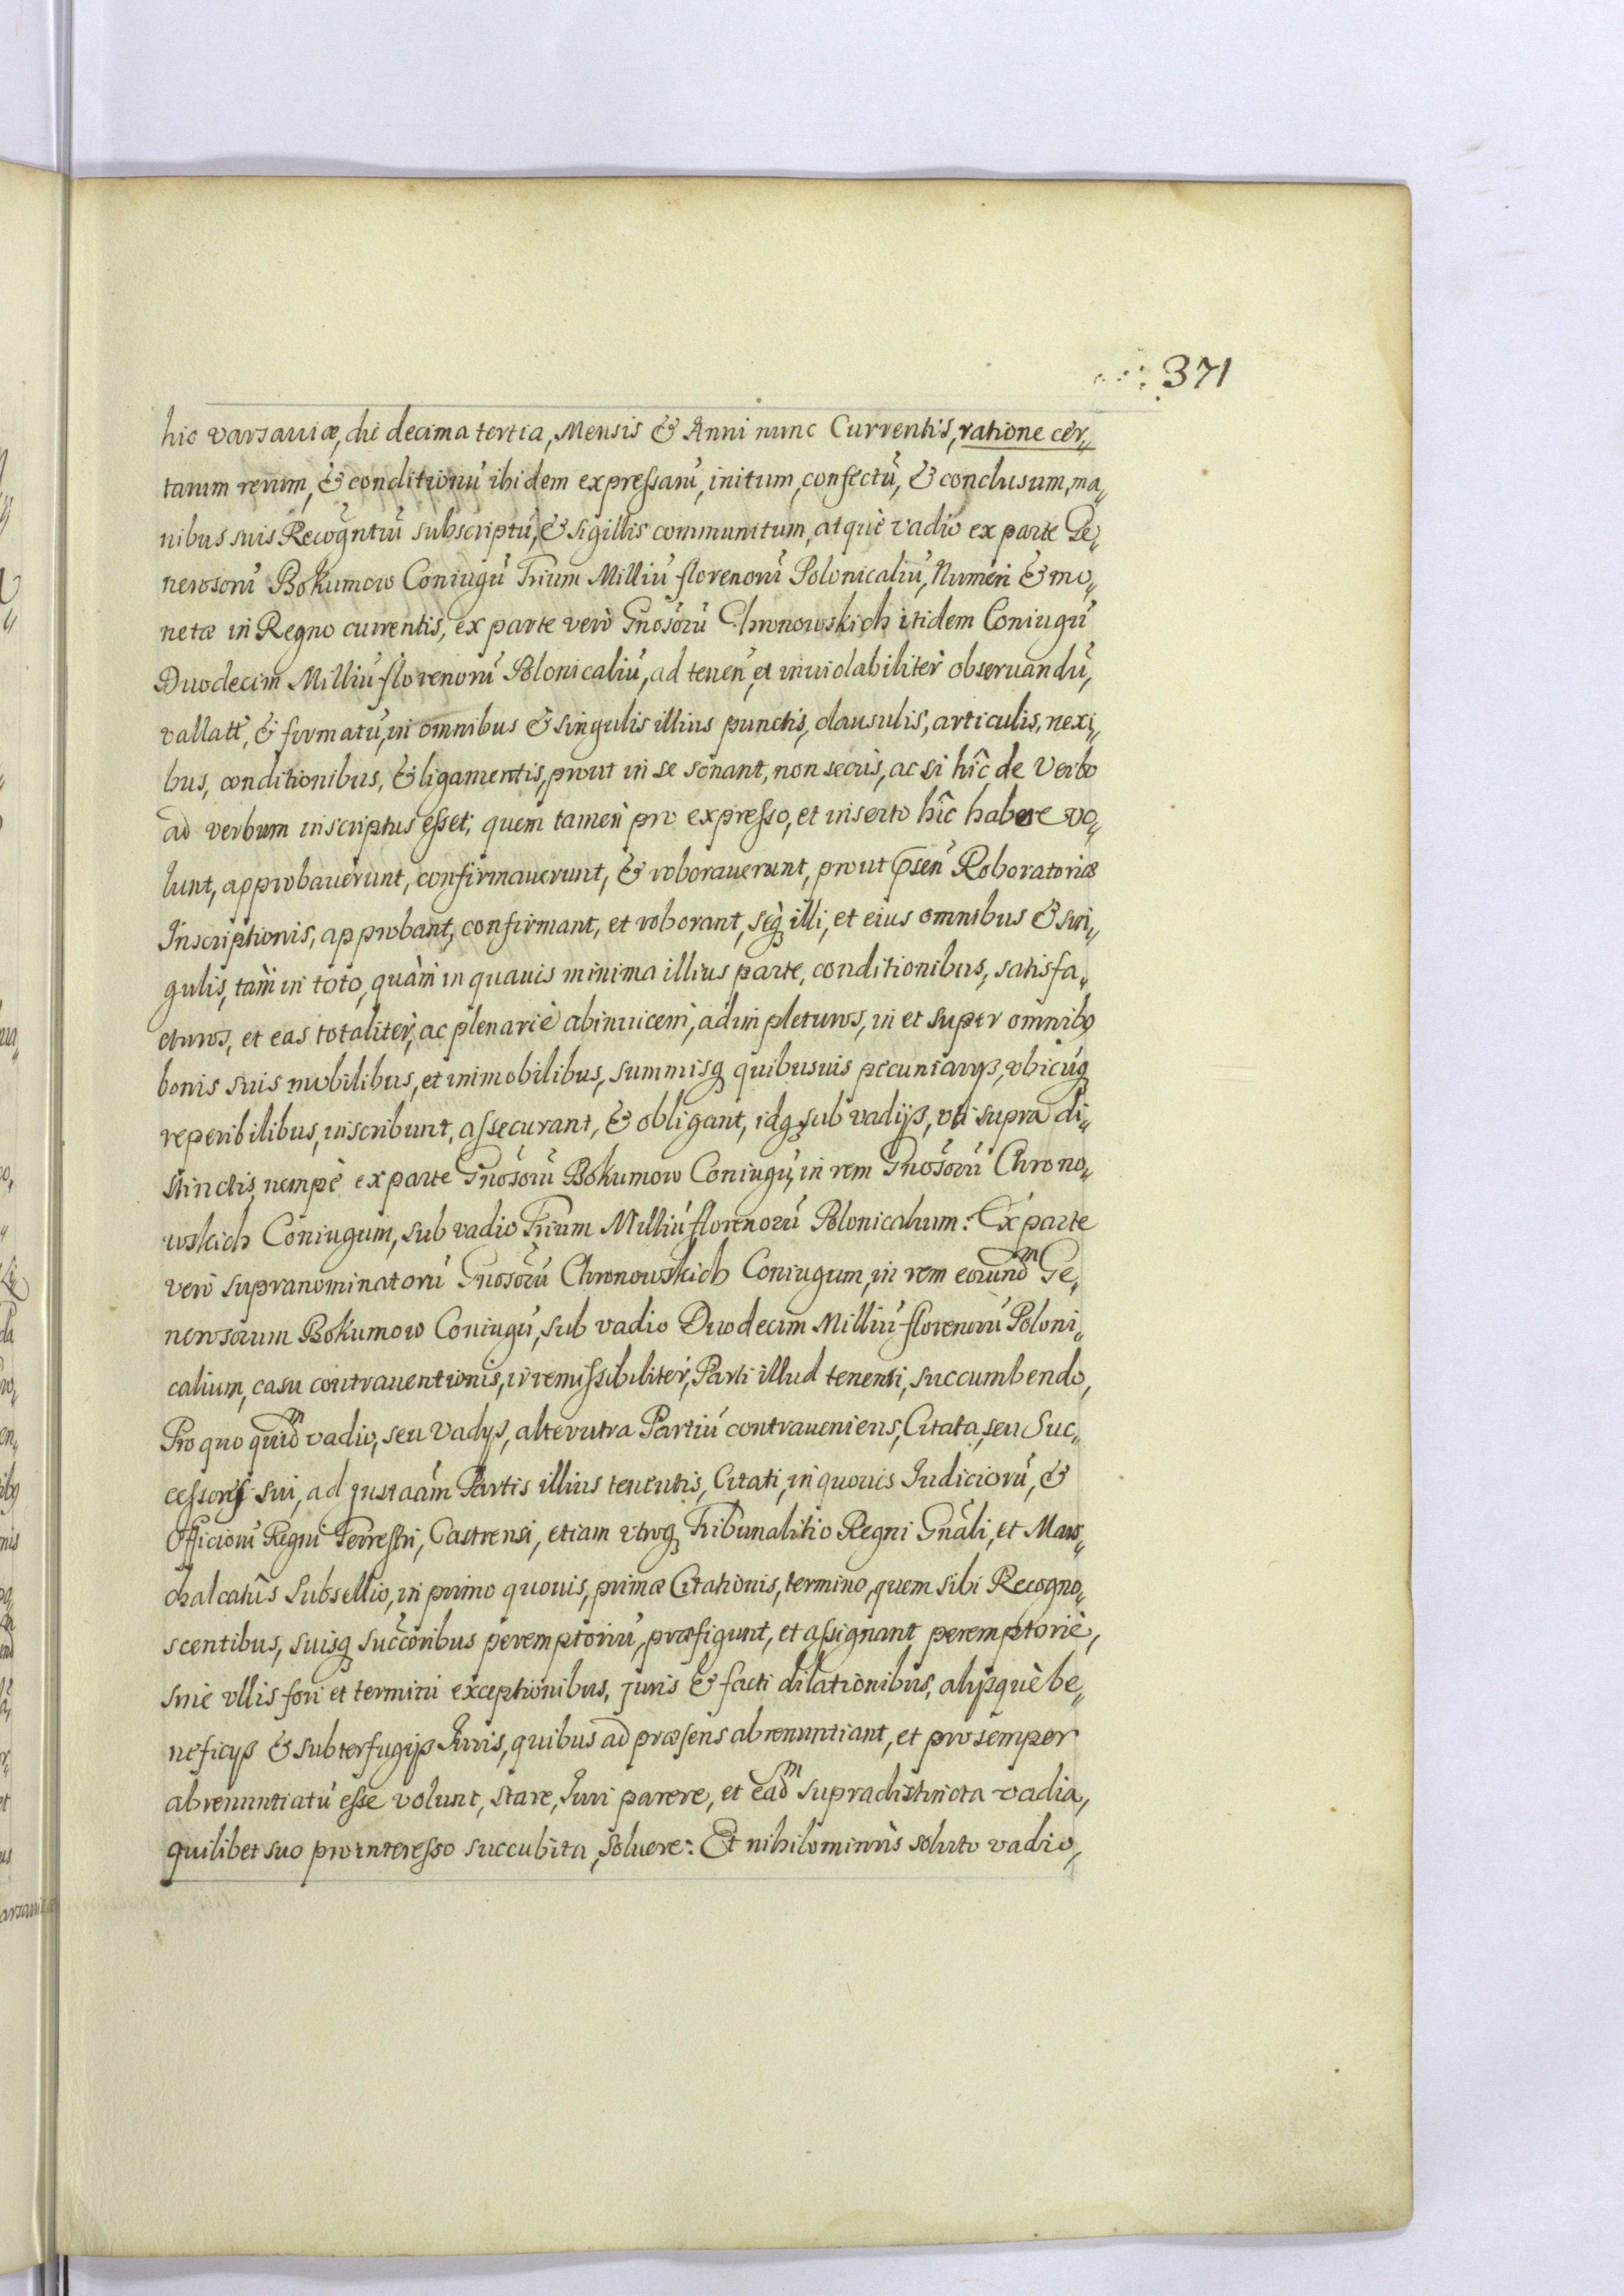 371
hic varsauiæ, die decima tertia, Mensis & Anni nunc Currentis, ratione cer„
tarum rerum, & conditionũ ibidem expressarũ, initum, confectũ, & conclusum, ma„
nibus suis Recogñtiũ subscriptũ, & sigillis communitum, atquè vadio ex parte Ge„
nerosorũ Bokumow Coniugũ Trium Milliũ florenorũ Polonicaliũ, Numeri & mo„
netæ in Regno currentis, ex parte verò Gnosorũ Chronowskich itidem Coniugũ
Duodecim Milliũ florenorũ Polonicaliũ, ad tenen̄, et inuiolabiliter obseruandũ,
vallatũ, & firmatũ, in omnibus & singulis illius punctis, clausulis, articulis, nexi„
bus, conditionibus, & ligamentis, prout in se sonant, non secùs, ac si hîc de Verbo
ad verbum inscriptus esset, quem tamen pro expresso, et inserto hîc habere vo„
lunt, approbauerunt, confirmauerunt, & roborauerunt, prout p̃sen̄ Roboratoriæ
Inscriptionis, approbant, confirmant, et roborant, seq́ illi, et eius omnibus & sin„
gulis, tàm in toto, quàm in quauis minima illius parte, conditionibus, satisfa„
cturos, et eas totaliter, ac plenariè abinuicem, adimpleturos, in et super omnibq
bonis suis mobilibus, et immobilibus, summisq́ quibusuis pecuniarijs, vbicũq́
reperibilibus, inscribunt, assecurant, & obligant, idq́ sub vadijs, vti supra di„
stinctis, nempè ex parte Gnosorũ Bokumow Coniugũ, in rem Gnosorũ Chrono„
wskich Coniugum, sub vadio Trium Milliũ florenorũ Polonicalium: Ex parte
verò supranominatorũ Gnosorũ Chronowskich Coniugum, in rem eorundᵐ Ge„
nerosorum Bokumow Coniugũ, sub vadio Duodecim Milliũ florenorũ Poloni„
calium, casu contrauentionis, irremissibiliter, Parti illud tenenti, succumbendo,
Pro quo quidᵐ vadio, seu Vadijs, alterutra Partiũ contraueniens, Citata, seu Suc„
cessores sui, ad instaām Partis illius tenentis, Citati, in quouis Iudiciorũ, &
Officiorũ Regni Terrestri, Castrensi, etiam vtroq́ Tribunalitio Regni Gnāli, et Mars„
chalcatûs Subsellio, in primo quouis, primæ Citationis, termino, quem sibi Recogno„
scentibus, suisq́ succ̄oribus peremptoriũ, præfigunt, et assignant peremptoriè,
sine vllis fori et termini exceptionibus, juris & facti dilationibus, alijsquè be„
neficijs & subterfugijs Iuris, quibus ad præsens abrenuntiant, et pro semper
abrenuntiatũ esse volunt, stare, Iuri parere, et eadᵐ supradistincta vadia,
quilibet suo pro interesso succubita, soluere: Et nihilominùs soluto vadio,